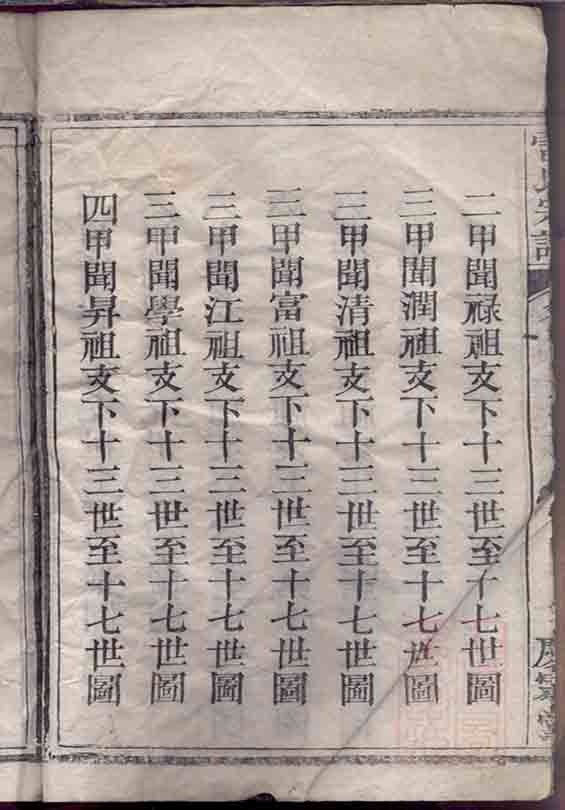 二甲聞祿祖支下十三世至十七世圖
三甲聞潤祖支下十三世至十七世圖
三甲聞清祖支下十三世至十七世圖
三甲聞富祖支下十三世至十七世圖
三甲聞江祖支下十三世至十七世圖
三甲聞學祖支下十三世至十七世圖
四甲聞昇祖支下十三世至十七世圖
氏宗譜